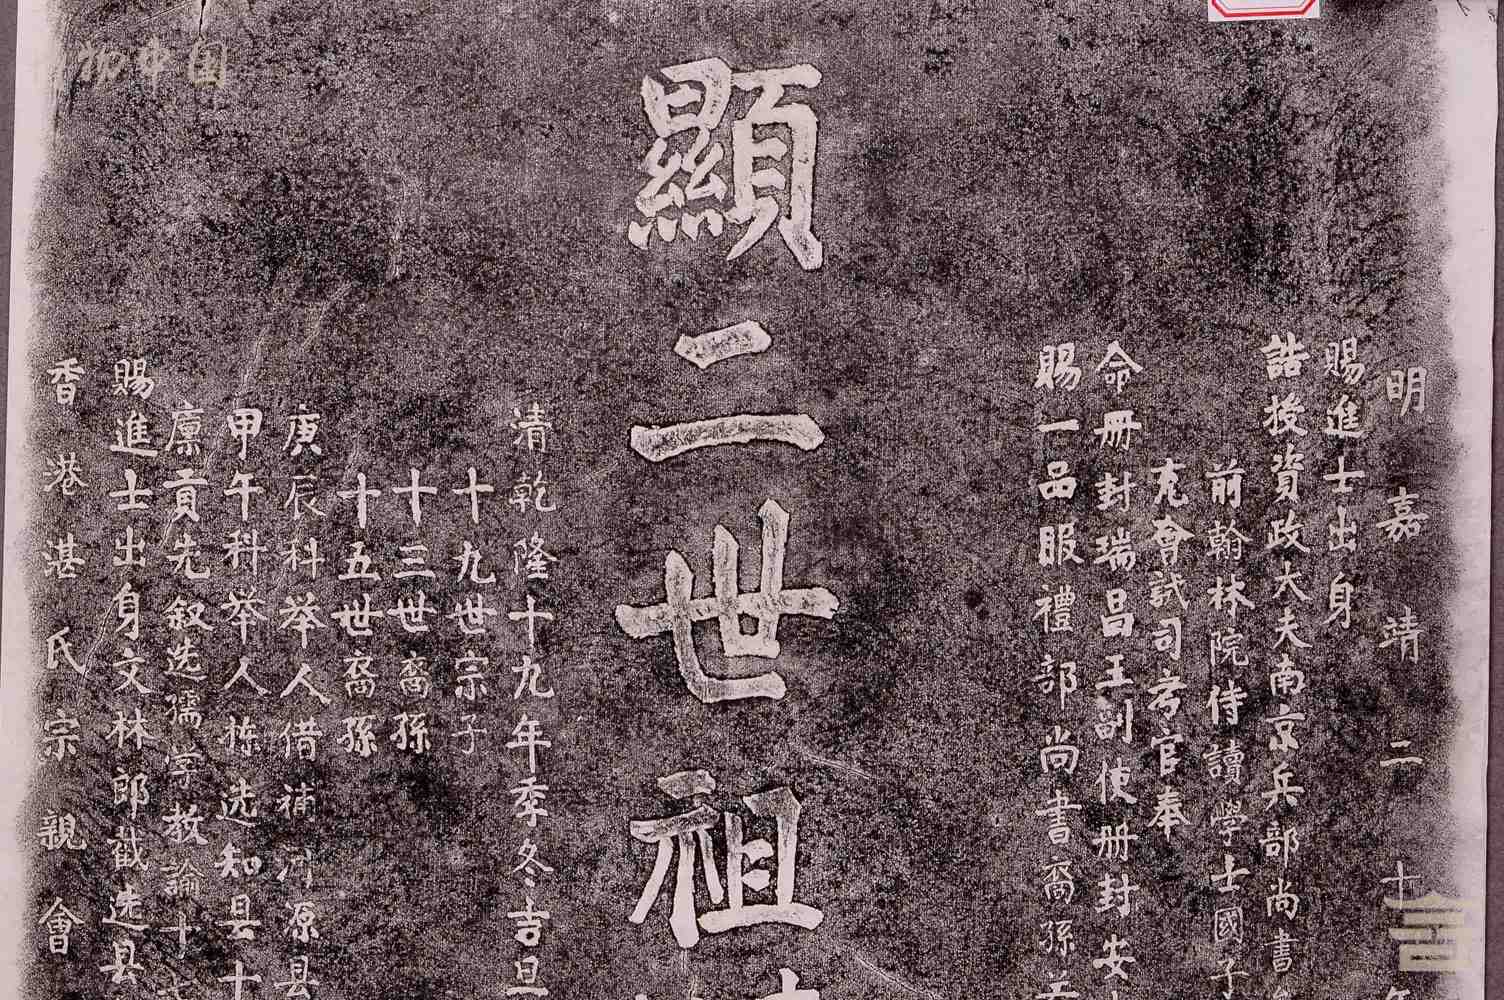 明嘉靖二十
賜進士出身
誥授資政大夫南京兵部尚書
前翰林院侍讀學士國子
充會試司考官奉
命冊封瑞昌王副使册封安
賜一品服禮部尚書裔孫
顯二世祖
清乾隆十九年季冬吉旦
十九世宗子
十三世裔孫
十五世裔孫
庚辰科举人借補河源县
甲午科举人拣选知县十
廪貢先叙选孺学教諭十
賜進士出身文林郎截选县
香港湛氏宗親會
物中国